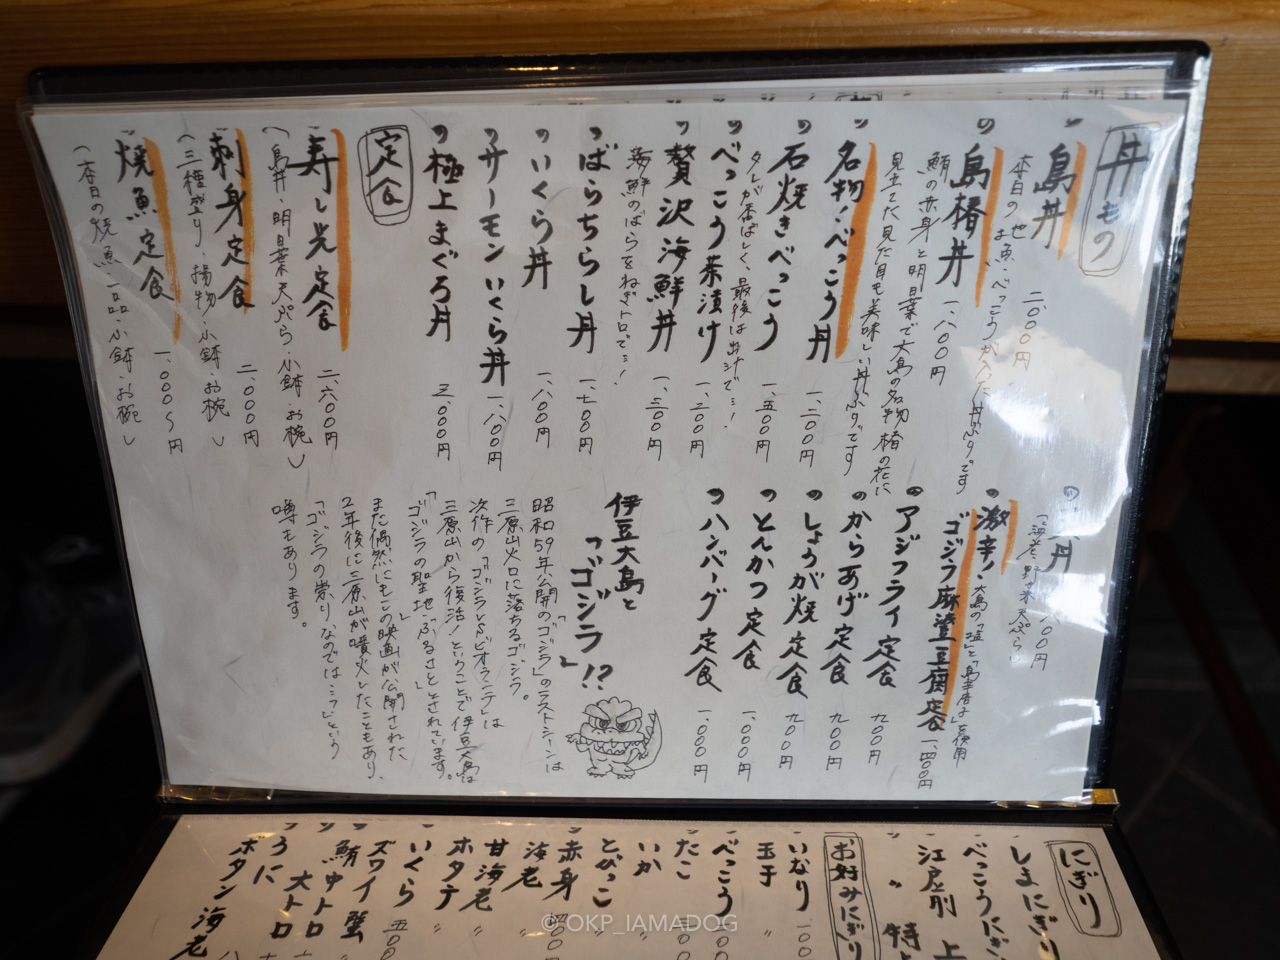 丼もの
島丼 二、〇〇〇円
本日の地のお魚・べっこうが入った丼ぶりです
島椿丼 一、八〇〇円
鮪の赤身と明日葉で大島の名物椿の花に
見立てた見た目も美味しい丼ぶりです
名物!べっこう丼 一、二〇〇円
石焼きべっこう 一、五〇〇円
タレが香ばしく、最後は出汁で…!
べっこう茶漬け 一、三〇〇円
贅沢海鮮丼
海鮮のばらをねぎトロで…!
ばらちらし丼 一、七〇〇円
いくら丼 一、八〇〇円
サーモンいくら丼 一、八〇〇円
極上まぐろ丼
定食
寿し光定食 二、六〇〇円
(島丼・明日葉天ぷら・小鉢・お椀)
刺身定食 二、〇〇〇円
(三種盛り・揚物・小鉢・お椀)
焼魚定食 一、〇〇〇〜円
(本日の焼魚一品・小鉢・お椀)
丼
野菜天ぷら
激辛!ゴジラ麻婆豆腐定食 一、四〇〇円
大島の「塩」と「島唐辛子」を使用
アジフライ定食 九〇〇円
からあげ定食 九〇〇円
しょうが焼定食 九〇〇円
とんかつ定食 一、〇〇〇円
ハンバーグ定食 一、〇〇〇円
伊豆大島と
「ゴジラ」!?
昭和59年公開の「ゴジラ」のラストシーンは
三原山火口に落ちるゴジラ。
次作の「ゴジラVSビオランテ」は
三原山から復活!ということで伊豆大島は
「ゴジラの聖地」「ふるさと」とされています。
また偶然にもこの映画が公開された
2年後に三原山が噴火したこともあり、
「ゴジラの祟りなのでは…?」という
噂もあります。
にぎり
しまにぎり
べっこうにぎ
江戸前 上
〃 特
お好みにぎり
いなり
玉子 〃
べっこう
たこ
いか
とびっこ
赤身
海老
甘海老 〃
ホタテ 〃
いくら
ズワイ蟹
鮪中トロ
大トロ
うに
ボタン海老
©OKP_IAMADOG